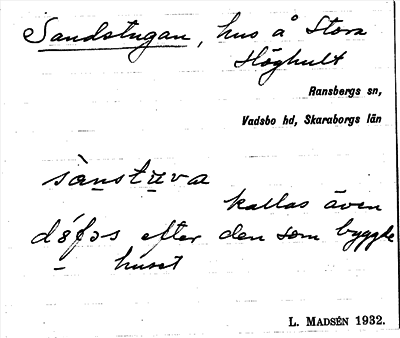 Sandstugan, hus å Stora
Höghult
Ransbergs sn,
Vadsbo hd, Skaraborgs län
sànstu̲va
kallas även
efter den som byggde
huset
L. MADSÉN 1932.